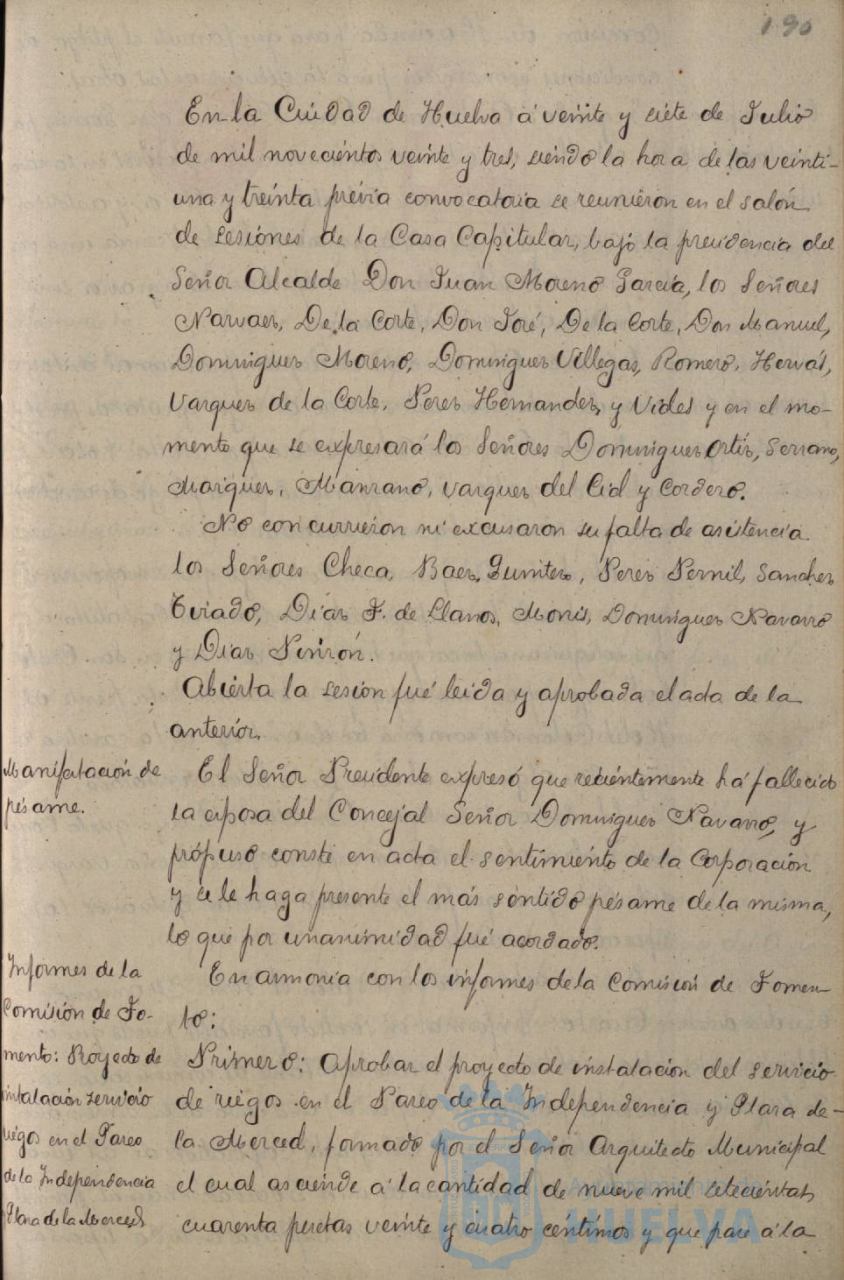 190
En la Ciudad de Huelva á veinte y siete de Julio
de mil novecientos veinte y tres, siendo la hora de las veinti-
una y treinta prévia convocatoria se reunieron en el salón
de sesiones de la Casa Capitular, bajo la presidencia del
Señor Alcalde Don Juan Moreno García, los Señores
Narvaez, De la Corte, Don José, De la Corte, Don Manuel,
Dominguez Moreno, Dominguez Villegas, Romero, Hervás,
Vazquez de la Corte, Perez Hernandez, y Vides y en el mo-
mento que se expresará los Señores Dominguez Ortiz, Serrano,
Marquez, Manzano, Vazquez del Cid y Cordero.
No concurrieron ni excusaron su falta de asistencia
los Señores Checa, Baez, Quintero, Perez Pernil, Sanchez
Tirado, Diaz F. de Llanos, Monis, Dominguez Navarro
y Diaz Pinzón.
Abierta la sesión fué leida y aprobada el acta de la
anterior.
Manifestación de
pésame.
El Señor Presidente expresó que reciéntemente há fallecido
la esposa del Concejal Señor Dominguez Navarro, y
própuso conste en acta el sentimiento de la Corporación
y se le haga presente el más séntido pésame de la misma,
lo que por unanimidad fué acordado.
Informes de la
Comisión de Fo-
mento: Proyecto de
instalación servicio
riegos en el Paseo
de la Independencia
y Plaza de la Merced
En armonia con los informes de la Comisión de Fomen-
to:
Primero: Aprobar el proyecto de instalacion del servicio
de riegos en el Paseo de la Independencia y Plaza de
la Merced, formado por el Señor Arquitecto Municipal
el cual asciende á la cantidad de nueve mil setecientas
cuarenta pesetas veinte y cuatro céntimos y que pase á la
HUELVA